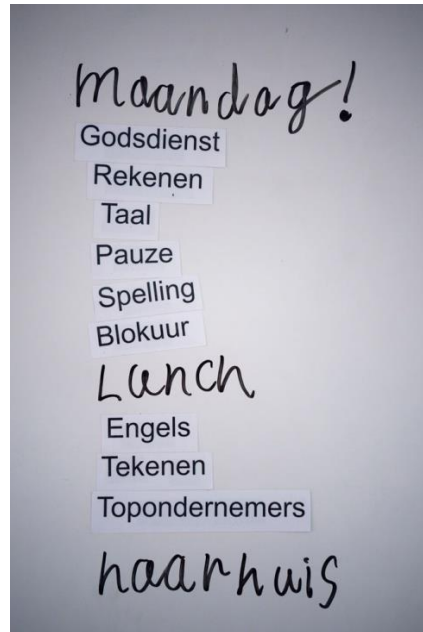 maandag!
Godsdienst
Rekenen
Taal
Pauze
Spelling
Blokuur
Lunch
Engels
Tekenen
Topondernemers
naarhuis